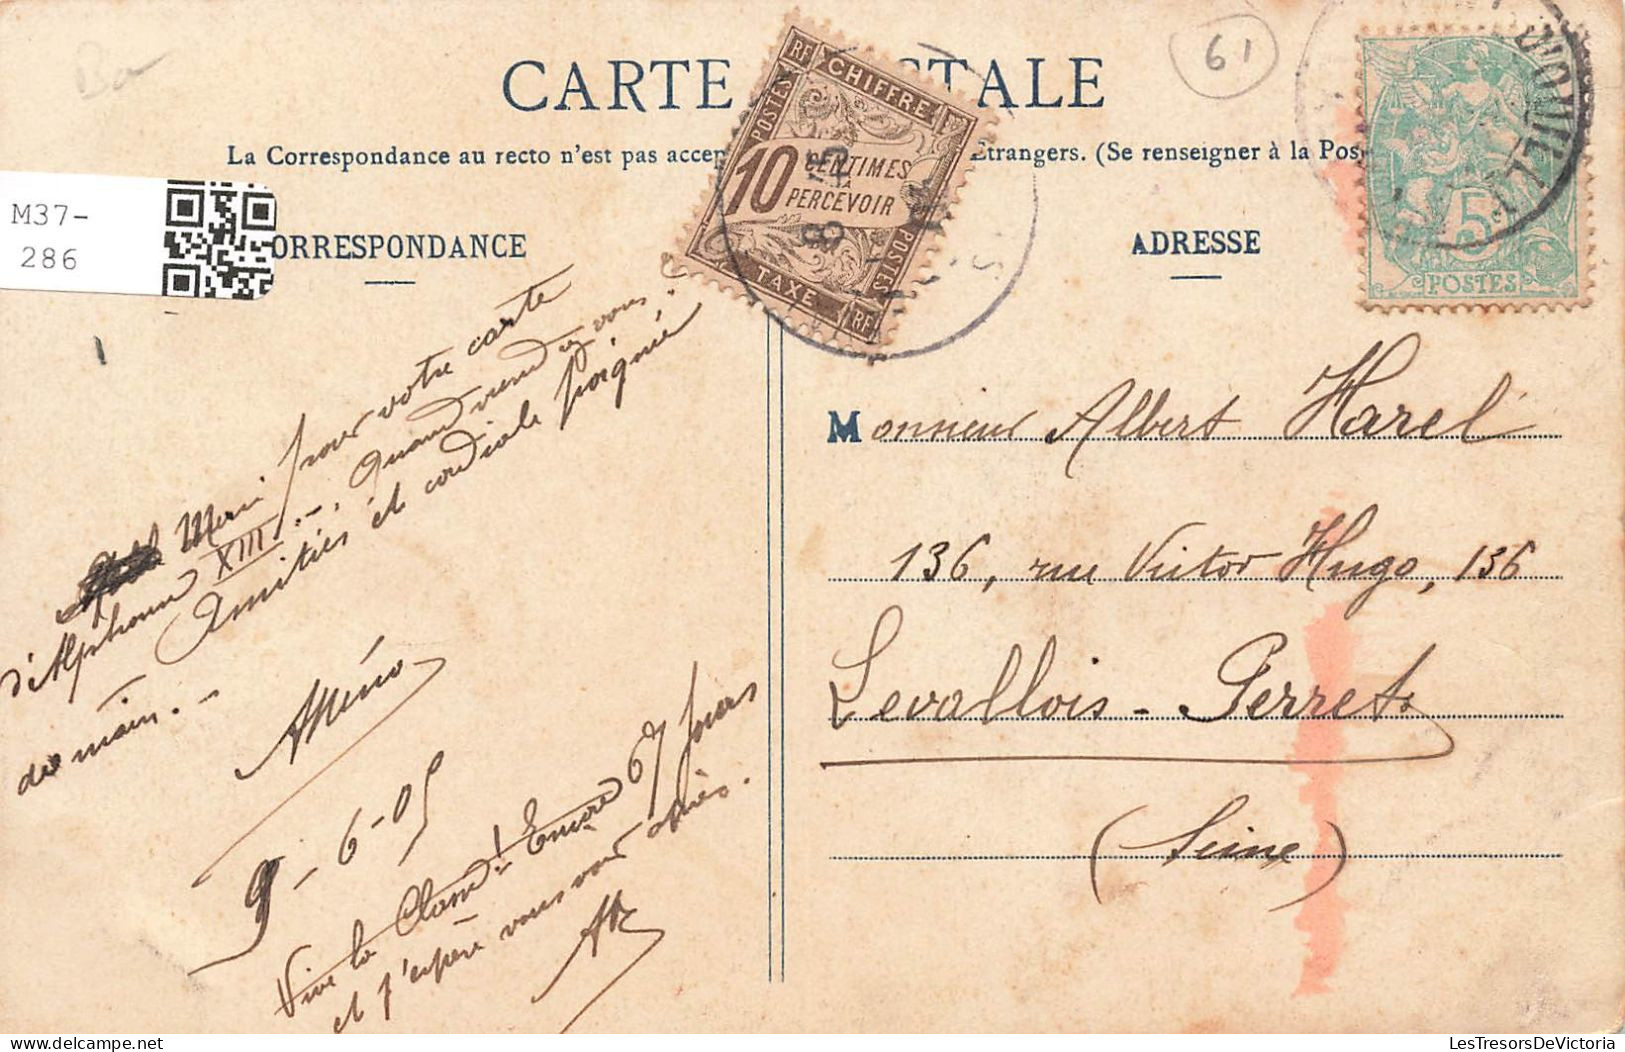 CARTE STALE
La Correspondance au recto n'est pas accep Etrangers. (Se renseigner à la Pos
M37-
286
ORRESPONDANCE
ADRESSE
61
RF
CHIFFRE
POSTES
10 CENTIMES
A
PERCEVOIR
POSTES
TAXE
RF
5c
POSTES
Merci pour votre carte
d'Alphonse XIII. Quand viendrez vous ?
Amitiés et cordiale poignée
de main. -
9-6-05
Vive la Classe ! Encore 67 jours
et j'espère vous voir après.
AR
Monsieur Albert Harel
136, rue Victor Hugo, 136
Levallois-Perret
(Seine)
LesTresorsDeVictoria